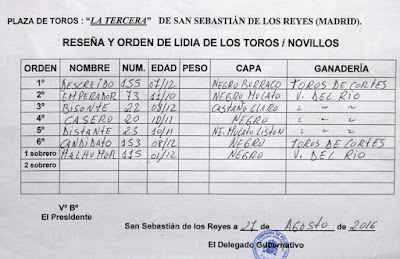 PLAZA DE TOROS : "LA TERCERA" DE SAN SEBASTIÁN DE LOS REYES (MADRID).
RESEÑA Y ORDEN DE LIDIA DE LOS TOROS / NOVILLOS
ORDEN NOMBRE NUM. EDAD PESO CAPA GANADERÍA
1º DESCREÍDO 155 07/12 NEGRO BURRACO TOROS DE CORTES
2º EMPERADOR 73 11/10 NEGRO MULATO V. DEL RIO
3º BISONTE 22 08/12 CASTAÑO CLARO " " "
4º CASERO 20 10/11 NEGRO " " "
5º DISTANTE 23 10/11 NE. MULATO LISTON " " "
6º CANDIDATO 153 08/12 NEGRO TOROS DE CORTES
1 sobrero MALHUMOR 115 01/12 NEGRO V. DEL RIO
2 sobrero
Vº Bº
El Presidente
San Sebastián de los Reyes a 27 de AGOSTO de 2016
El Delegado Gubernativo